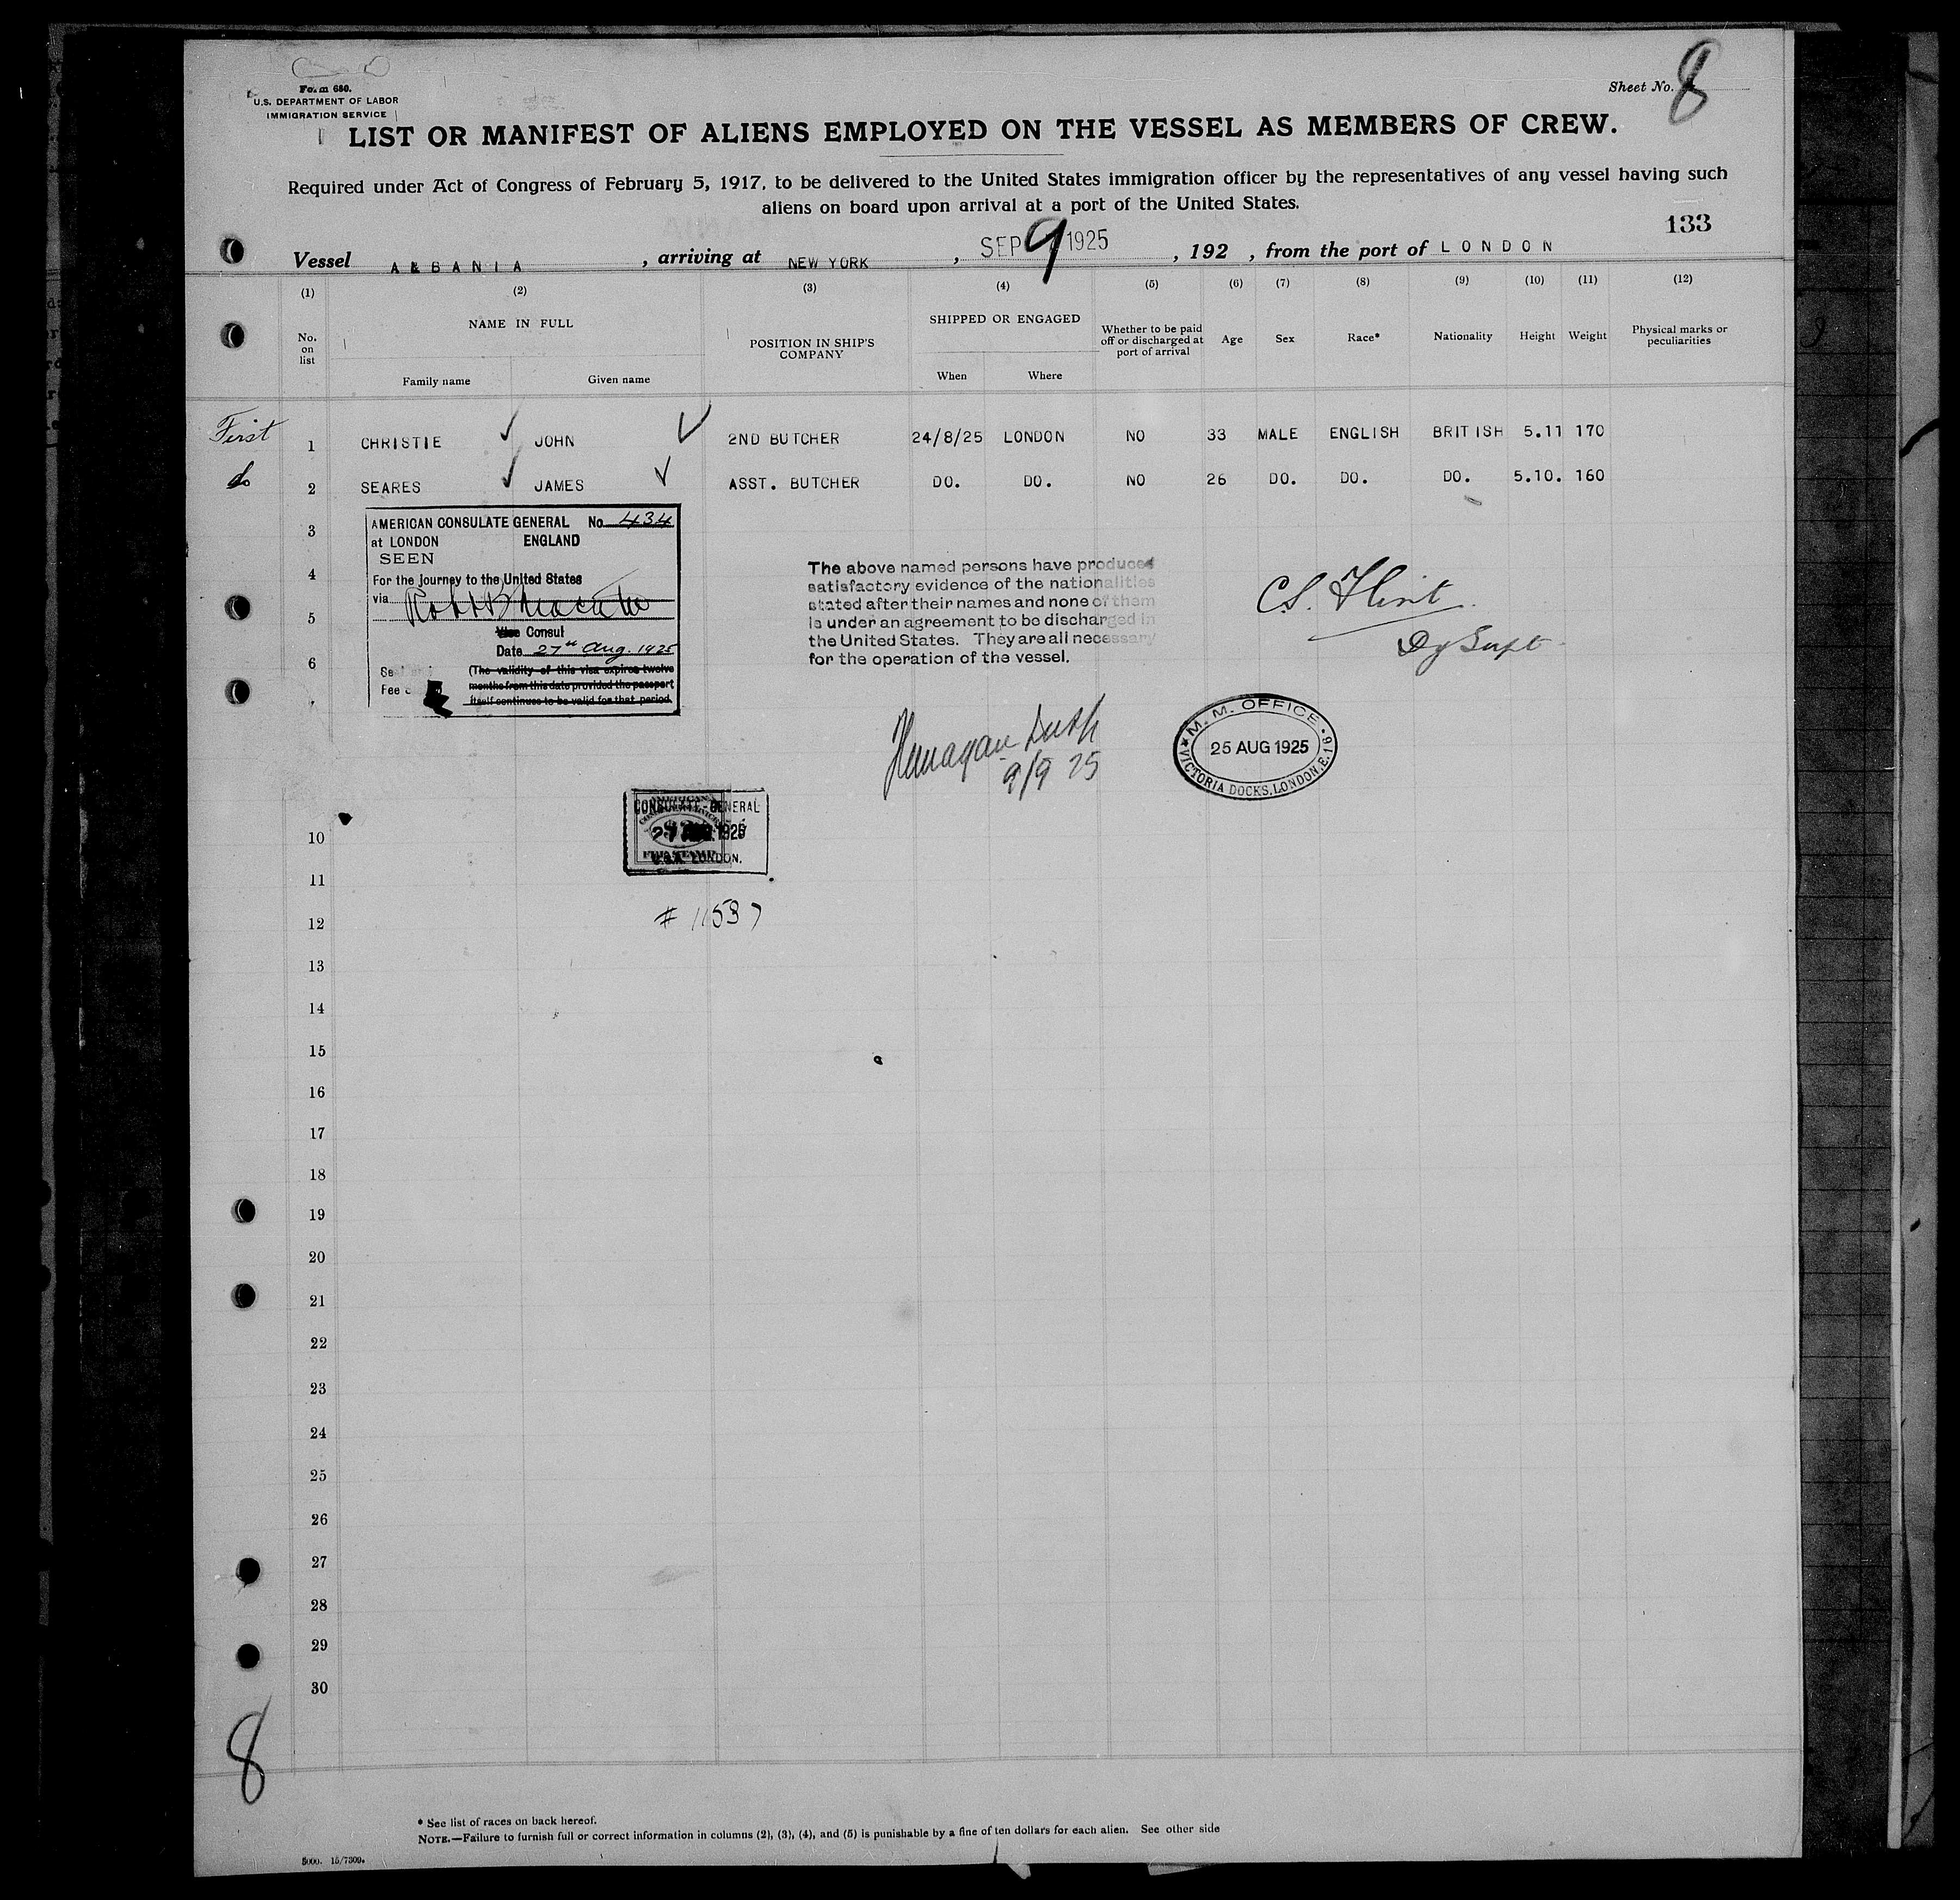 Form 680.
U.S. DEPARTMENT OF LABOR
IMMIGRATION SERVICE
Sheet No. 8
LIST OR MANIFEST OF ALIENS EMPLOYED ON THE VESSEL AS MEMBERS OF CREW.
Required under Act of Congress of February 5, 1917, to be delivered to the United States immigration officer by the representatives of any vessel having such
aliens on board upon arrival at a port of the United States.
133
Vessel ALBANIA, arriving at NEW YORK, SEP 9 1925, 192 , from the port of LONDON
(1) (2) (3) (4) (5) (6) (7) (8) (9) (10) (11) (12)
No. on list NAME IN FULL POSITION IN SHIP'S COMPANY SHIPPED OR ENGAGED Whether to be paid off or discharged at port of arrival Age Sex Race* Nationality Height Weight Physical marks or peculiarities
Family name Given name When Where
First 1 CHRISTIE ✓ JOHN ✓ 2ND BUTCHER 24/8/25 LONDON NO 33 MALE ENGLISH BRITISH 5.11 170
do 2 SEARES ✓ JAMES ✓ ASST. BUTCHER DO. DO. NO 26 DO. DO. DO. 5.10. 160
3
4
5
6
AMERICAN CONSULATE GENERAL No. 434
at LONDON ENGLAND
SEEN
For the journey to the United States
via
Vice Consul
Date 27th Aug. 1925
(The validity of this visa expires twelve
months from this date provided the passport
itself continues to be valid for that period.
Fee
The above named persons have produced
satisfactory evidence of the nationalities
stated after their names and none of them
is under an agreement to be discharged in
the United States. They are all necessary
for the operation of the vessel.
C.S. Flint
Dy Supt
9/9 25
M. M. OFFICE
25 AUG 1925
VICTORIA DOCKS, LONDON, E.16
CONSULATE-GENERAL
27 AUG 1925
U.S.A. LONDON.
10
11
12
13
14
15
16
17
18
19
20
21
22
23
24
25
26
27
28
29
30
8
* See list of races on back hereof.
NOTE.—Failure to furnish full or correct information in columns (2), (3), (4), and (5) is punishable by a fine of ten dollars for each alien. See other side
5000. 15/7309.